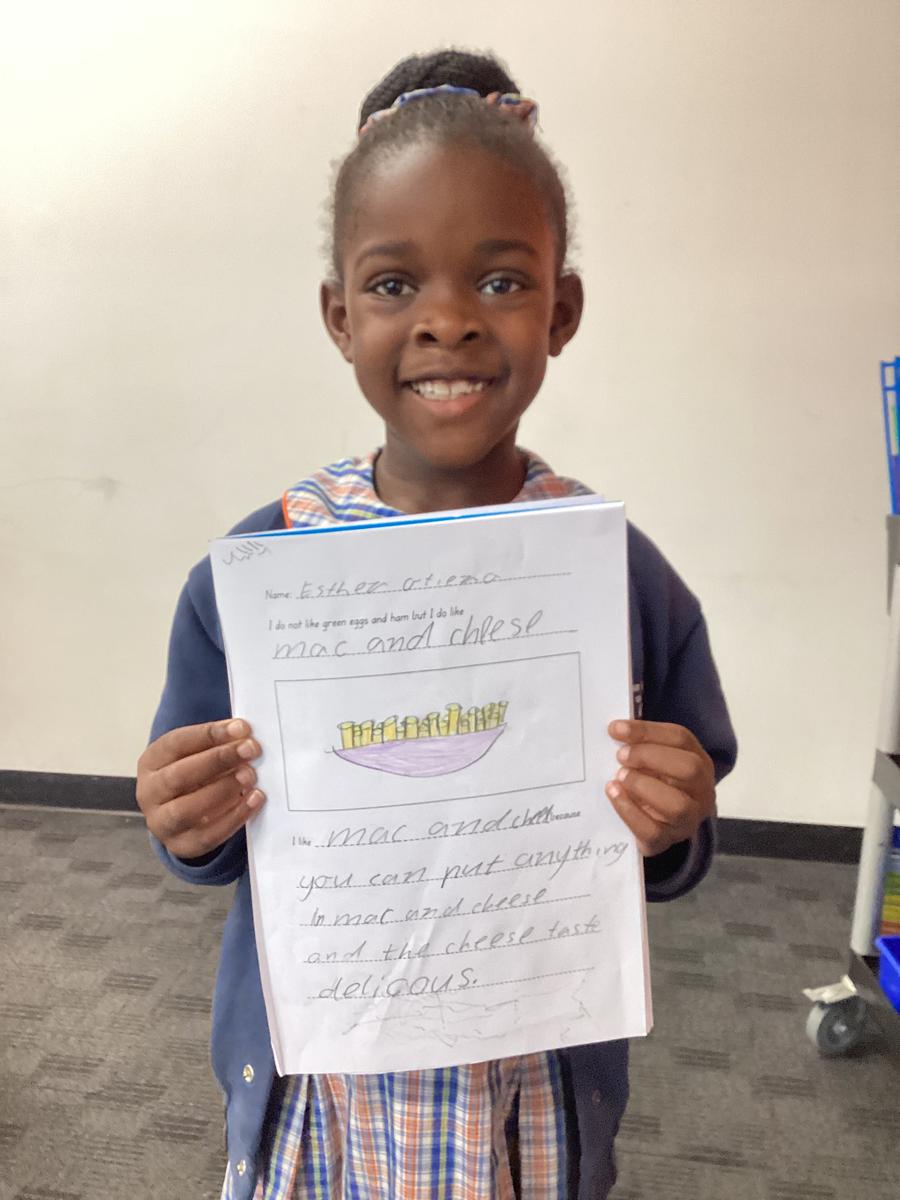 Name: Esther otieno
I do not like green eggs and ham but I do like
mac and cheese
I like mac and because
you can put anything
In mac and cheese
and the cheese taste
delicous.